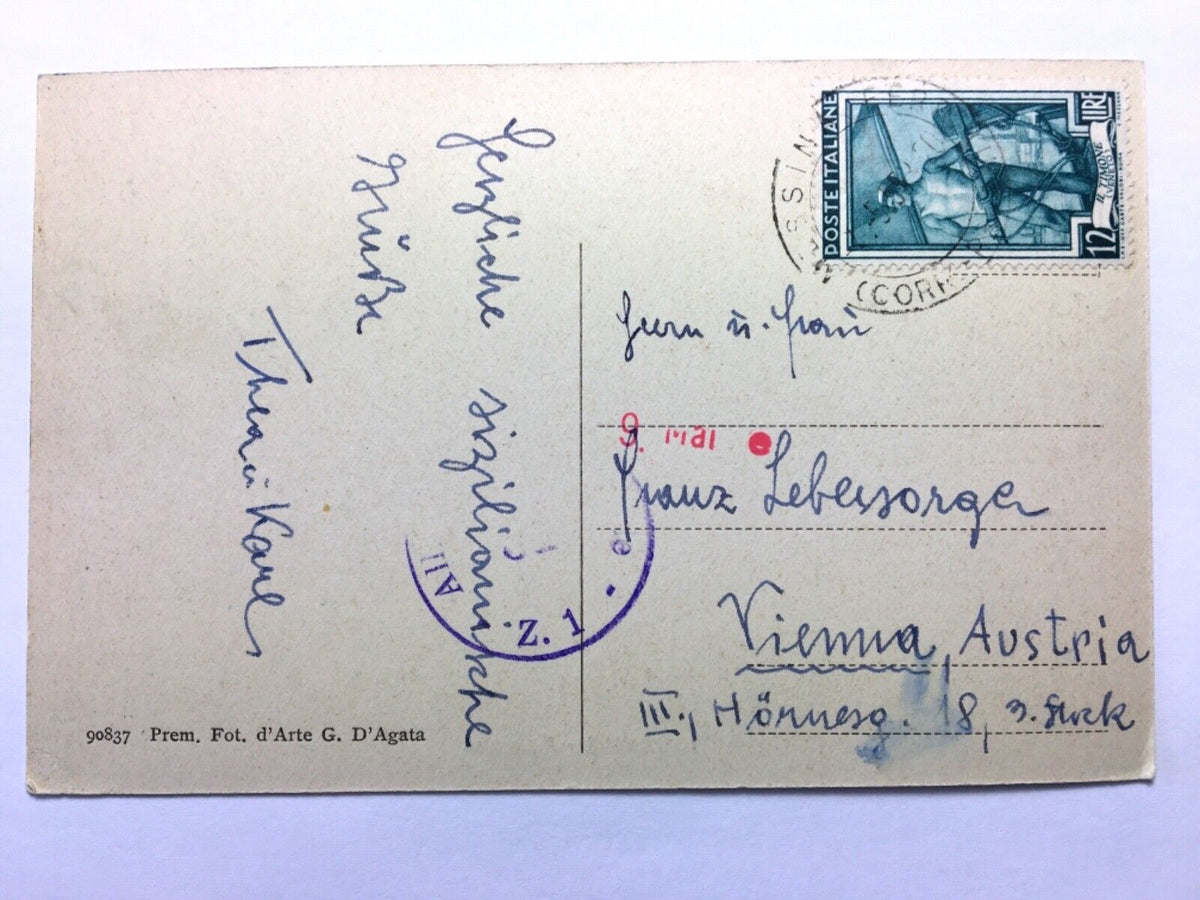 Herzliche sizilianische
Grüße
Thea u. Karl
POSTE ITALIANE
12
LIRE
IL TIMONE
(VENETO)
SSIN
(CORR
Herrn u. Frau
9. Mai
Franz Lebersorger
Vienna, Austria
III., Hörnesg. 18, 3. Stock
All
Z. 1
e
90837 Prem. Fot. d'Arte G. D'Agata